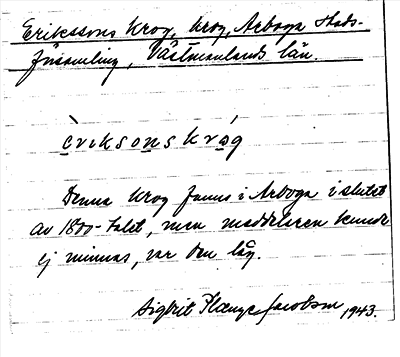 Erikssons Krog, krog, Arboga stads-
församling, Västmanlands län.
èriksonskròg
Denna krog fanns i Arboga i slutet
av 1800-talet, men meddelaren kunde
ej minnas, var den låg.
Sigbrit Plænge Jacobson 1943.